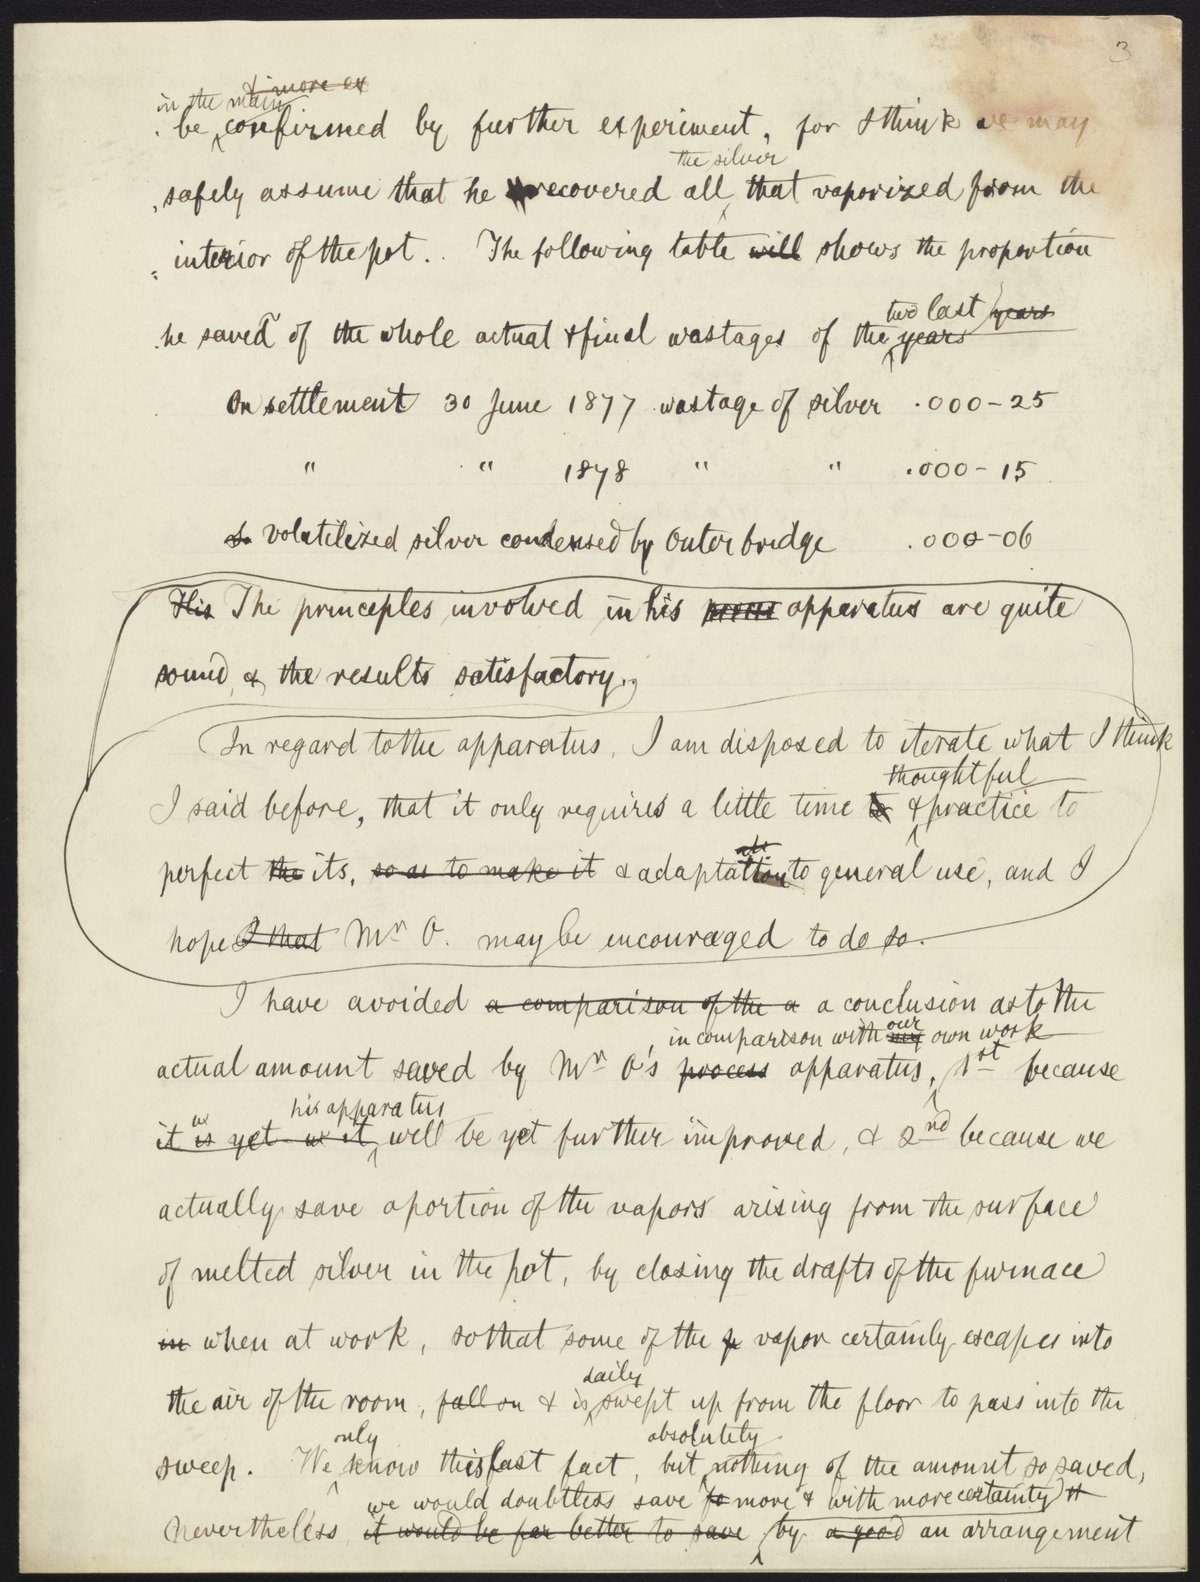 3
& more ex
in the main
be confirmed by further experiment, for I think we may
the silver
safely assume that he recovered all that vaporized from the
interior of the pot. The following table will shows the proportion
two last years
he saved of the whole actual & final wastages of the years
On settlement 30 June 1877 wastage of silver .000-25
" " 1878 " " .000-15
volatilized silver condensed by Outerbridge .000-06
His The principles involved in his process apparatus are quite
sound, & the results satisfactory.
In regard to the apparatus, I am disposed to iterate what I think
thoughtful
I said before, that it only requires a little time to & practice to
perfect the its, so as to make it & adaptation to general use, and I
hope I that Mr O. may be encouraged to do so.
I have avoided a comparison of the a a conclusion as to the
in comparison with my our own work
actual amount saved by Mr O's process apparatus, 1st because
his apparatus
it is yet as it will be yet further improved, & 2nd because we
actually save a portion of the vapors arising from the surface
of melted silver in the pot, by closing the drafts of the furnace
in when at work, so that some of the vapor certainly escapes into
daily
the air of the room, fall on & is swept up from the floor to pass into the
only absolutely
sweep. We know this last fact, but nothing of the amount so saved,
we would doubtless save to more & with more certainty it
nevertheless it would be far better to save by a good an arrangement